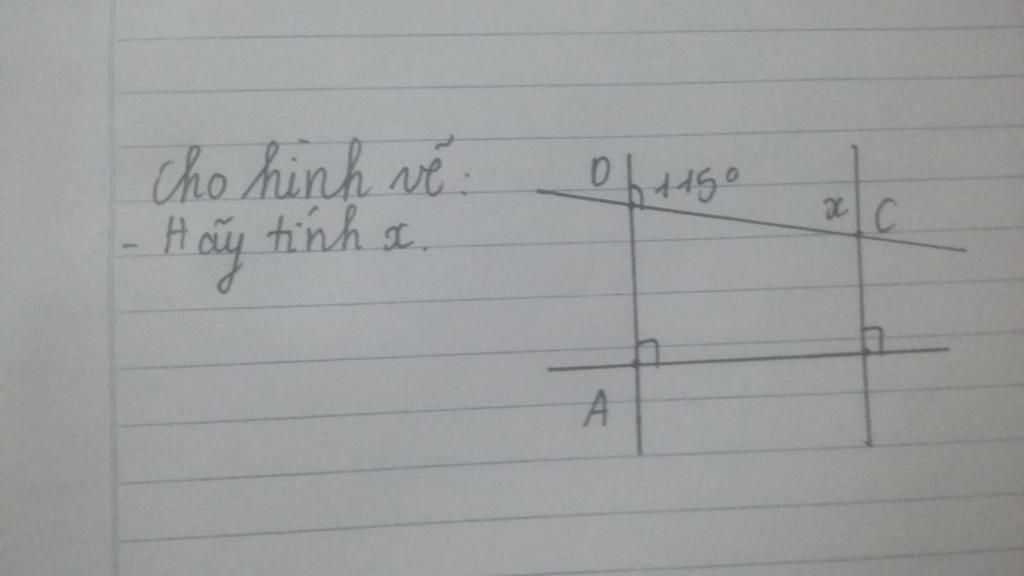 Cho hình vẽ:
- Hãy tính x.
D 115°
x C
A